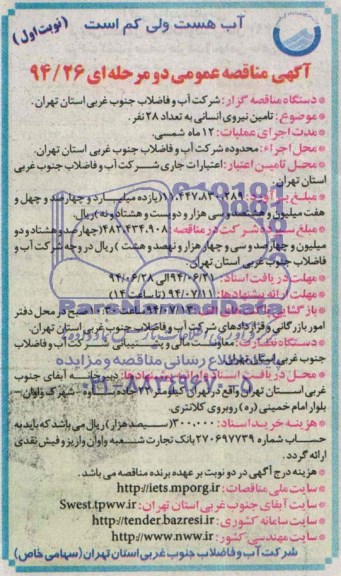 آب هست ولی کم است
(نوبت اول)
آگهی مناقصه عمومی دو مرحله ای ۹۴/۲۶
* دستگاه مناقصه گزار: شرکت آب و فاضلاب جنوب غربی استان تهران.
* موضوع: تامین نیروی انسانی به تعداد ۲۸ نفر.
* مدت اجرای عملیات: ۱۲ ماه شمسی.
* محل اجراء: محدوده شرکت آب و فاضلاب جنوب غربی استان تهران.
* محل تامین اعتبار: اعتبارات جاری شرکت آب و فاضلاب جنوب غربی
استان تهران.
* مبلغ برآورد: ۱۱.۴۴۷.۸۳۰.۲۸۹(یازده میلیارد و چهارصد و چهل و
هفت میلیون و هشتصد و سی هزار و دویست و هشتاد و نه) ریال.
* مبلغ سپرده شرکت در مناقصه: ۴۸۲.۴۳۴.۹۰۸(چهارصد و هشتاد و دو
میلیون و چهارصد و سی و چهار هزار و نهصد و هشت ) ریال در وجه شرکت آب و
فاضلاب جنوب غربی استان تهران.
* مهلت دریافت اسناد: ۹۴/۰۶/۲۱ الی ۹۴/۰۶/۲۸
* مهلت ارائه پیشنهادها: ۹۴/۰۷/۱۱ (تا ساعت ۱۴)
صبح در محل دفتر
امور بازرگانی و قراردادهای شرکت آب و فاضلاب جنوب غربی استان تهران.
* دستگاه نظارت: شرکت آب و فاضلاب
جنوب غربی استان تهران
پایگاه اطلاع رسانی مناقصه و مزایده
۰۲۱-۸۸۳۴۹۶۷۰-۵
* محل دریافت اسناد و ارائه پیشنهادها: دبیرخانه آبفای جنوب
غربی استان تهران واقع در تهران کیلومتر ۲۳ جاده ساوه - شهرک واوان -
بلوار امام خمینی (ره) روبروی کلانتری.
* هزینه خرید اسناد: ۳۰۰.۰۰۰(سیصد هزار) ریال می باشد که باید به
حساب شماره ۲۷۰۶۹۷۷۳۹ بانک تجارت شعبه واوان واریز و فیش نقدی
ارائه گردد.
* هزینه درج آگهی در دو نوبت بر عهده برنده مناقصه می باشد.
* سایت ملی مناقصات: http://iets.mporg.ir
* سایت آبفای جنوب غربی استان تهران: Swest.tpww.ir
* سایت سامانه کشوری: http://tender.bazresi.ir
* سایت مهندسی کشور: http://www.nww.ir
شرکت آب و فاضلاب جنوب غربی استان تهران (سهامی خاص)